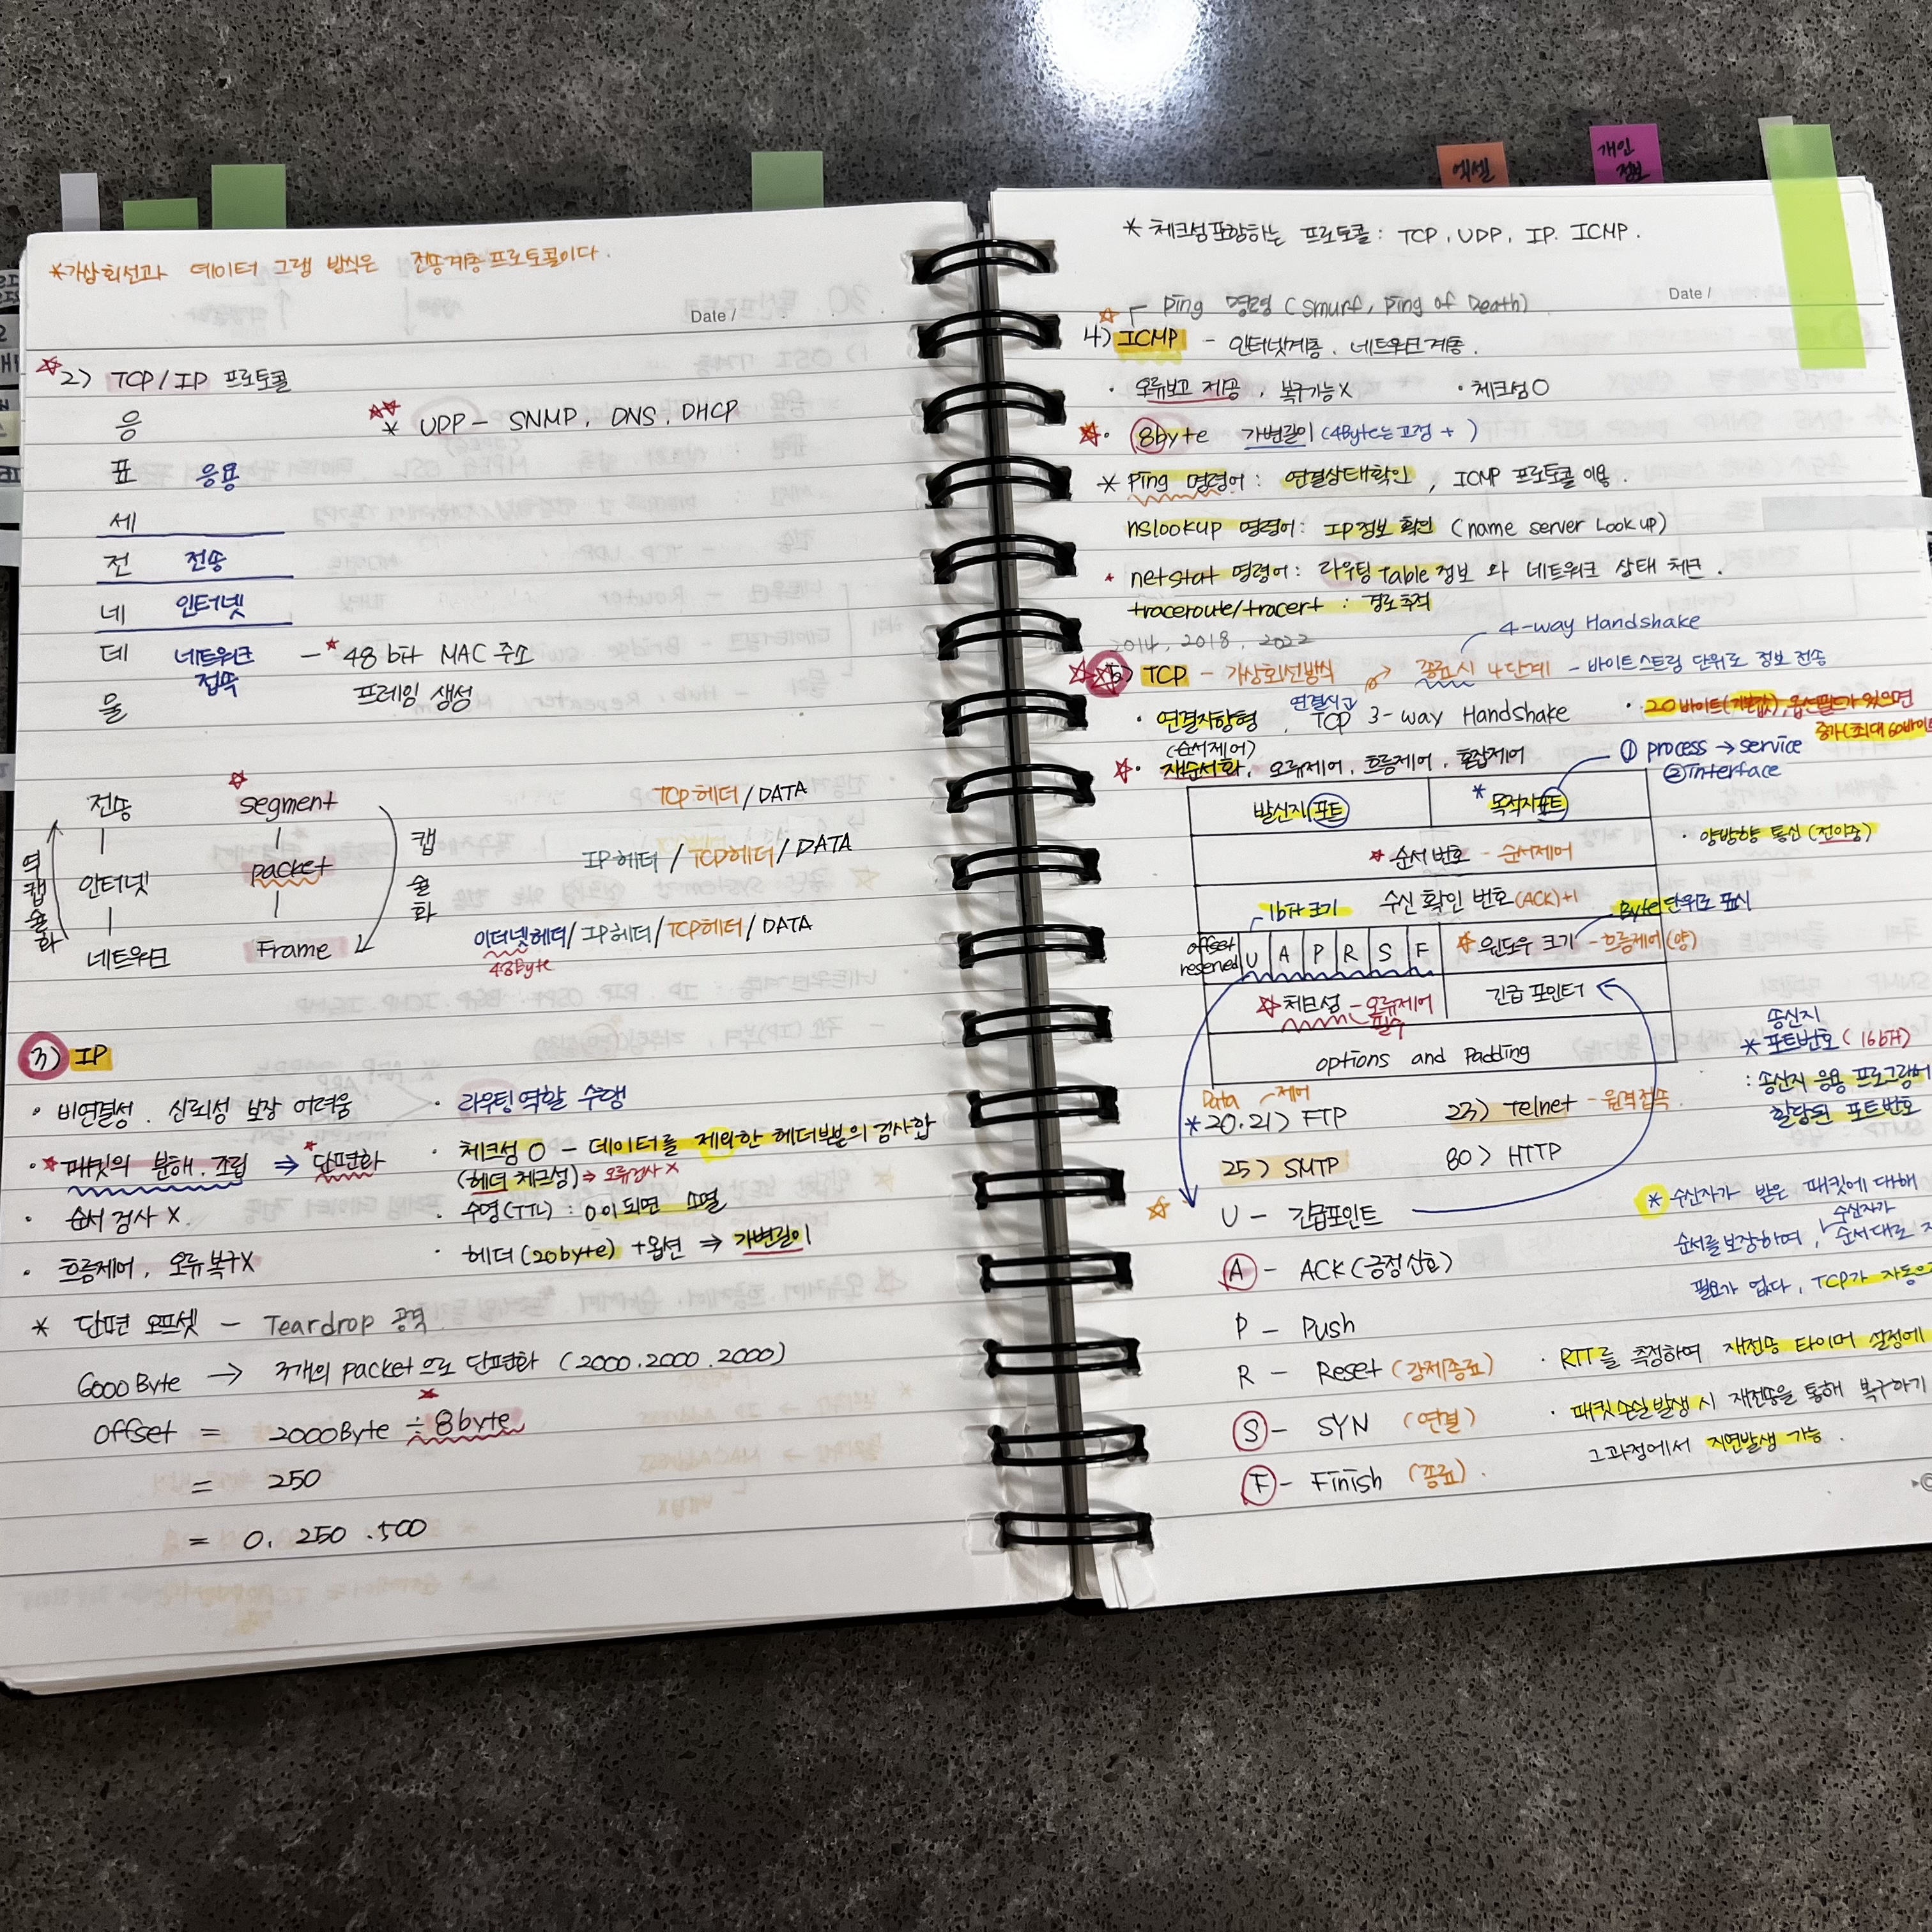 *가상회선과 데이터 그램 방식은 전송계층프로토콜이다.
Date /
2) TCP/IP 프로토콜
응
* UDP - SNMP, DNS, DHCP
표 응용
세
전 전송
네 인터넷
데 네트워크 접속 - *48 bit MAC 주소
물 프레임 생성
전송 segment TCP헤더/DATA
역캡슐화 캡슐화
인터넷 packet IP헤더/TCP헤더/DATA
네트워크 Frame 이더넷헤더/IP헤더/TCP헤더/DATA
48Byte
3) IP
· 비연결성. 신뢰성 보장 어려움 · 라우팅역할 수행
· *패킷의 분해.조립 ⇒ *단편화 · 체크섬 O - 데이터를 제외한 헤더부분의 검사합
(헤더 체크섬) ⇒ 오류검사 X
· 순서 검사 X. · 수명(TTL) : 0이 되면 소멸
· 흐름제어, 오류복구X · 헤더(20byte) +옵션 ⇒ 가변길이
* 단편 오프셋 - Teardrop 공격
6000Byte → 3개의 packet으로 단편화 (2000.2000.2000)
offset = 2000Byte ÷ 8byte
= 250
= 0. 250 .500
엑셀
개인정보
* 체크섬포함하는 프로토콜: TCP, UDP, IP. ICMP.
Date /
Ping 명령 (Smurf, Ping of Death)
4) ICMP - 인터넷계층. 네트워크계층.
· 오류보고 제공, 복구기능X · 체크섬O
· 8byte 가변길이(4Byte는 고정 + )
* Ping 명령어: 연결상태확인, ICMP 프로토콜 이용.
nslookup 명령어: IP정보 확인 (name server Look up)
* netstat 명령어: 라우팅 Table 정보 와 네트워크 상태 체크.
traceroute/tracert : 경로추적
2014, 2018, 2022
4-way Handshake
5) TCP - 가상회선방식 종료시 4단계 - 바이트스트림 단위로 정보 전송
· 연결지향형 연결시 TCP 3-way Handshake · 20바이트(기본값), 옵션필드가 있으면
증가(최대 60바이트
(순서제어)
· 재순서화, 오류제어, 흐름제어, 혼잡제어
① process → service
② Interface
발신지포트 * 목적지포트
· 양방향 통신(전이중)
* 순서 번호 - 순서제어
1bit 크기 수신 확인 번호(ACK)+1
Byte단위로 표시
offset reserved U A P R S F 윈도우 크기 - 흐름제어(양)
체크섬 - 오류제어 필수 긴급 포인터
options and Padding
송신지
* 포트번호 (16bit)
: 송신지 응용 프로그램에
할당된 포트번호
Data 제어
*20.21) FTP 23) Telnet - 원격접속
25) SMTP 80) HTTP
U - 긴급포인트
A - ACK (긍정신호)
P - Push
R - Reset (강제종료)
S - SYN (연결)
F - Finish (종료).
* 수신자가 받은 패킷에 대해
순서를 보장하여, 수신자가 순서대로
필요가 없다, TCP가 자동으
· RTT를 측정하여 재전송 타이머 설정에
· 패킷손실발생시 재전송을 통해 복구하기
그과정에서 지연발생 가능.